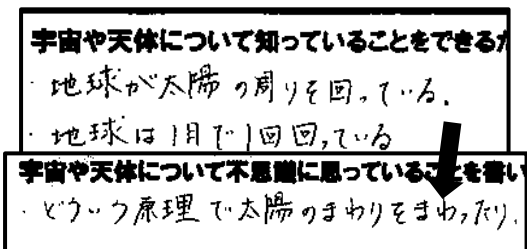 宇宙や天体について知っていることをできるだ
・地球が太陽の周りを回っている.
・地球は1月で1回回っている
宇宙や天体について不思議に思っていることを書い
・どういう原理で太陽のまわりをまわったり,